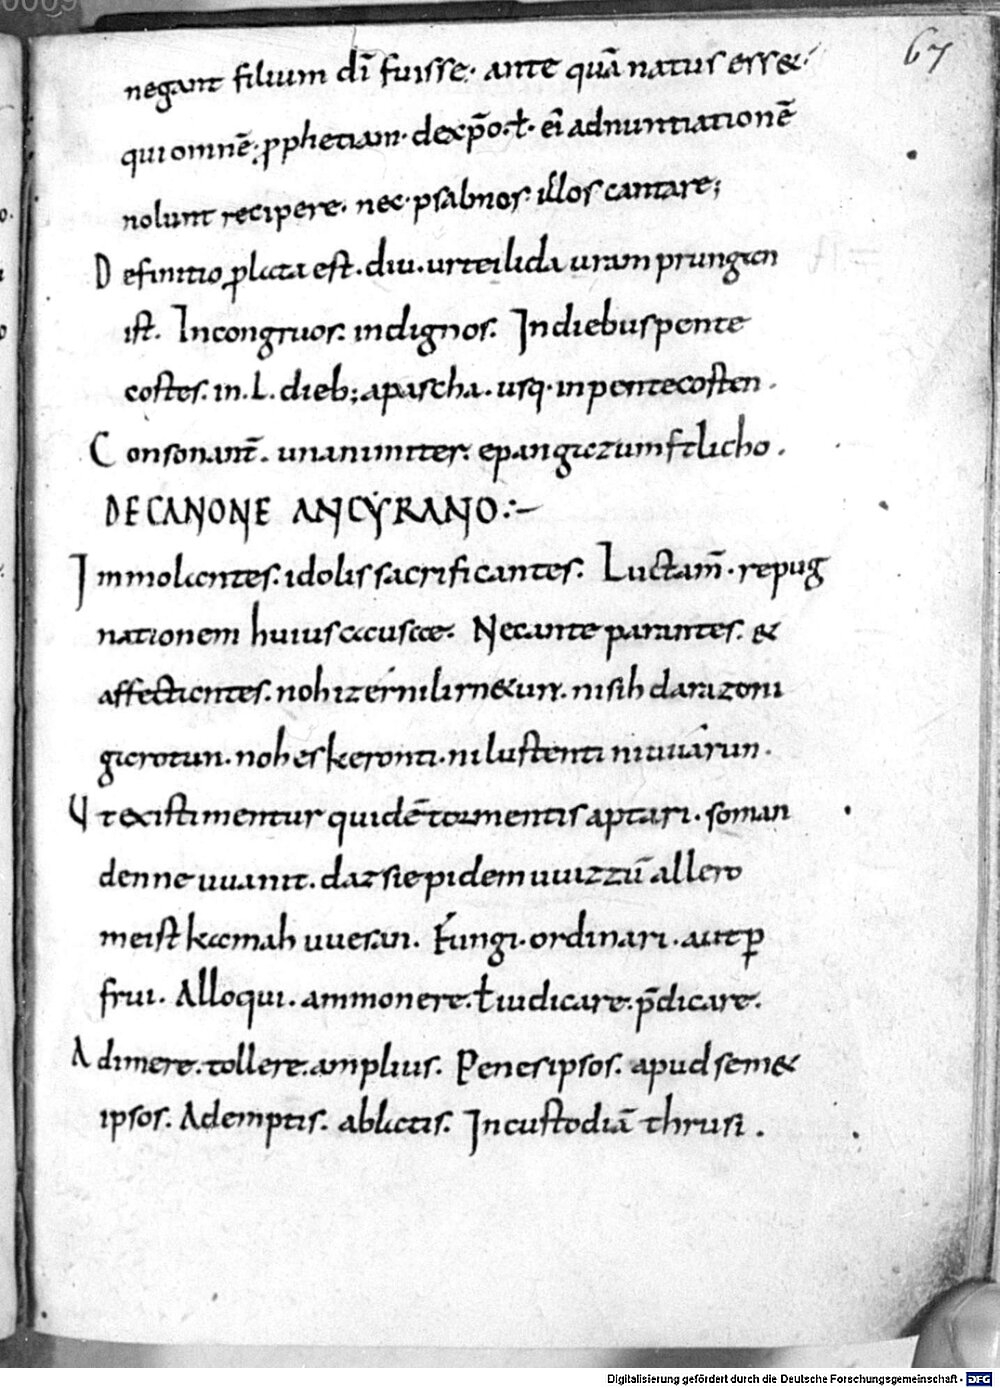 67
negant filium dī fuisse· ante quā natus ess&·
qui omnē· ꝓphetiam· de xp̄o· ł· eī adnuntiationē
nolunt recipere· nec· psalmos· illos cantare;
Definitio ꝓlata est· diu· urteilida uram prungan
ist. Incongruos. indignos. In diebus pente
costes. in. L. dieb; a pascha. usq· in pentecosten.
Consonant̄. unanimiter. epangiczumftlicho.
DE CANONE ANCYRANO:–
Immolantes. idolis sacrificantes. Luctam̄. repug
nationem huius causae. Necante parantes. &
affectantes. noh izér nilirn&un. nisih darazoni
garotun. noh es keronti. ni lustenti ni uuárun.
Ut existimentur quidē tormentis aptari. so man
denne uuanit. daz sie pi dem uuizzū allero
meist kamah uuesan. Fungi. ordinari. aut ꝑ
frui. Alloqui. ammonere. ł iudicare. p̄dicare.
Adimere. tollere. amplius. Penes ipsos. apud sem&
ipsos. Ademptis. ablatis. In custodiā thrusi.
Digitalisierung gefördert durch die Deutsche Forschungsgemeinschaft - DFG